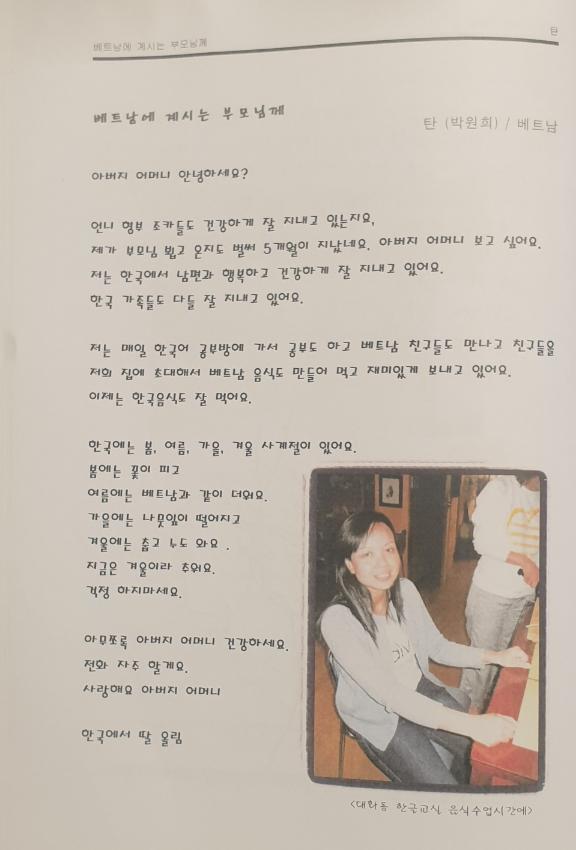 베트남에 계시는 부모님께
탄
베트남에 계시는 부모님께
탄 (박원희) / 베트남
아버지 어머니 안녕하세요?
언니 형부 조카들도 건강하게 잘 지내고 있는지요,
제가 부모님 뵙고 온지도 벌써 5개월이 지났네요. 아버지 어머니 보고 싶어요.
저는 한국에서 남편과 행복하고 건강하게 잘 지내고 있어요.
한국 가족들도 다들 잘 지내고 있어요.
저는 매일 한국어 공부방에 가서 공부도 하고 베트남 친구들도 만나고 친구들을
저희 집에 초대해서 베트남 음식도 만들어 먹고 재미있게 보내고 있어요.
이제는 한국음식도 잘 먹어요.
한국에는 봄, 여름, 가을, 겨울 사계절이 있어요.
봄에는 꽃이 피고
여름에는 베트남과 같이 더워요.
가을에는 나뭇잎이 떨어지고
겨울에는 춥고 눈도 와요 .
지금은 겨울이라 추워요.
걱정 하지마세요.
아무쪼록 아버지 어머니 건강하세요.
전화 자주 할게요.
사랑해요 아버지 어머니
한국에서 딸 올림
<대화동 한글교실 음식수업시간에>